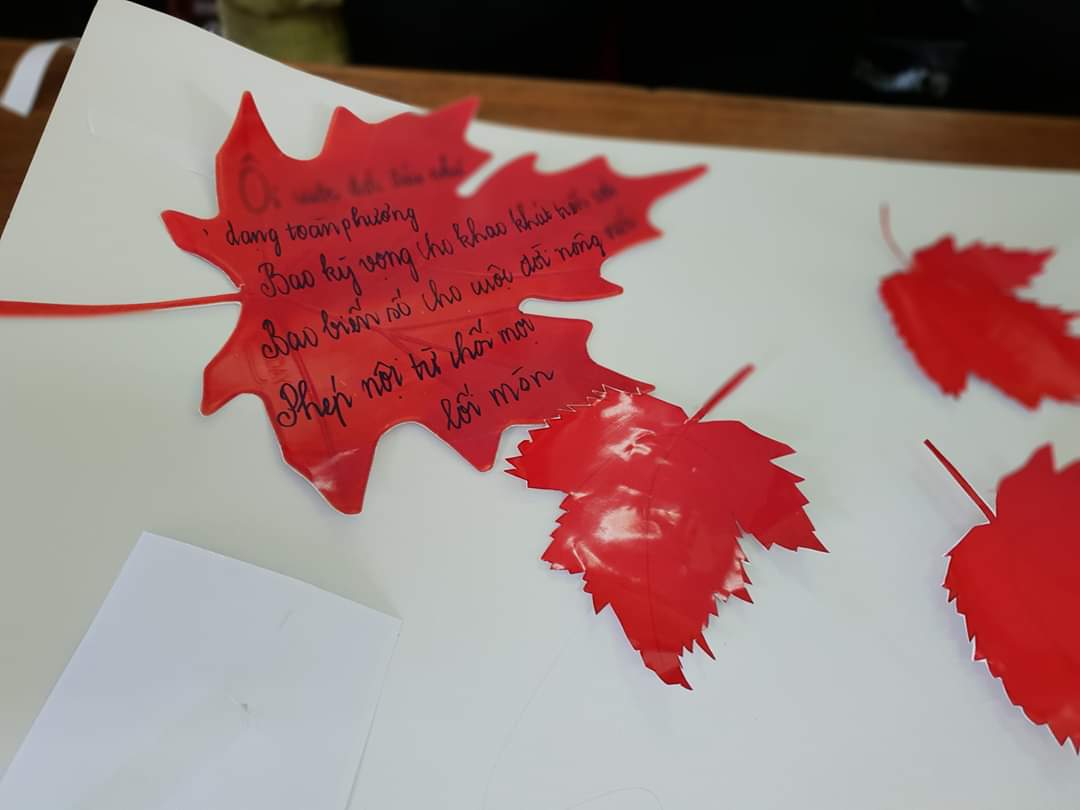 Ôi cuộc đời
dạng toàn phương
Bao kỳ vọng cho khao khát
Bao biến số cho cuộc đời nông
Phép nội từ chối mọi
lối mòn